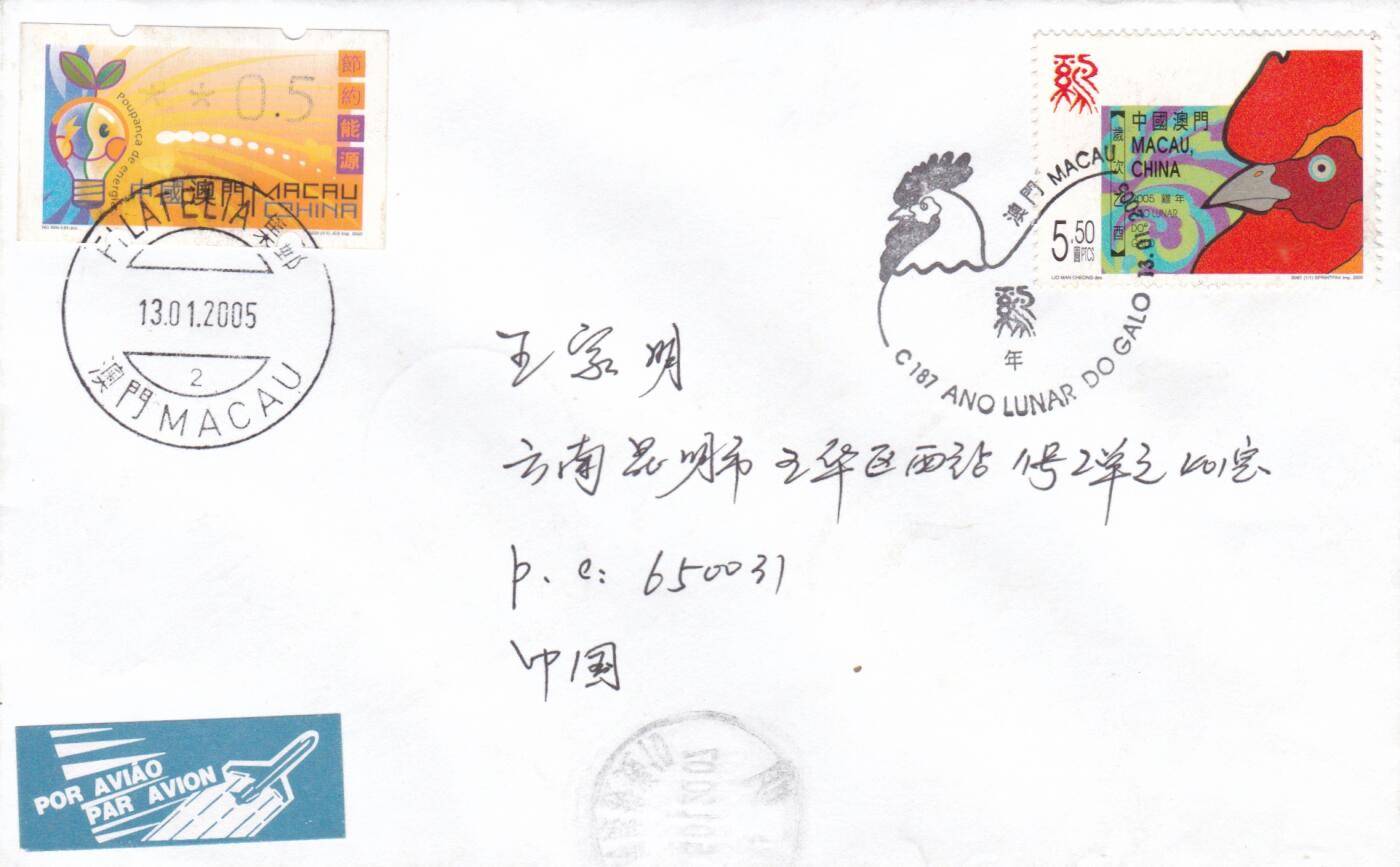 **0.5
節約能源
Poupança de energia
中國澳門 MACAU
CHINA
FILATELIA 集郵
13.01.2005
2
澳門 MACAU
雞
歲次乙酉
中國澳門
MACAU,
CHINA
2005 雞年
ANO LUNAR
DO
GALO
5.50
圓 PTCS
LIO MAN CHEONG des.
澳門 MACAU
雞
年
C 187 ANO LUNAR DO GALO 13.01.2005
王家明
云南昆明市五华区西站1号2单元201室
p.c: 650031
中国
POR AVIÃO
PAR AVION